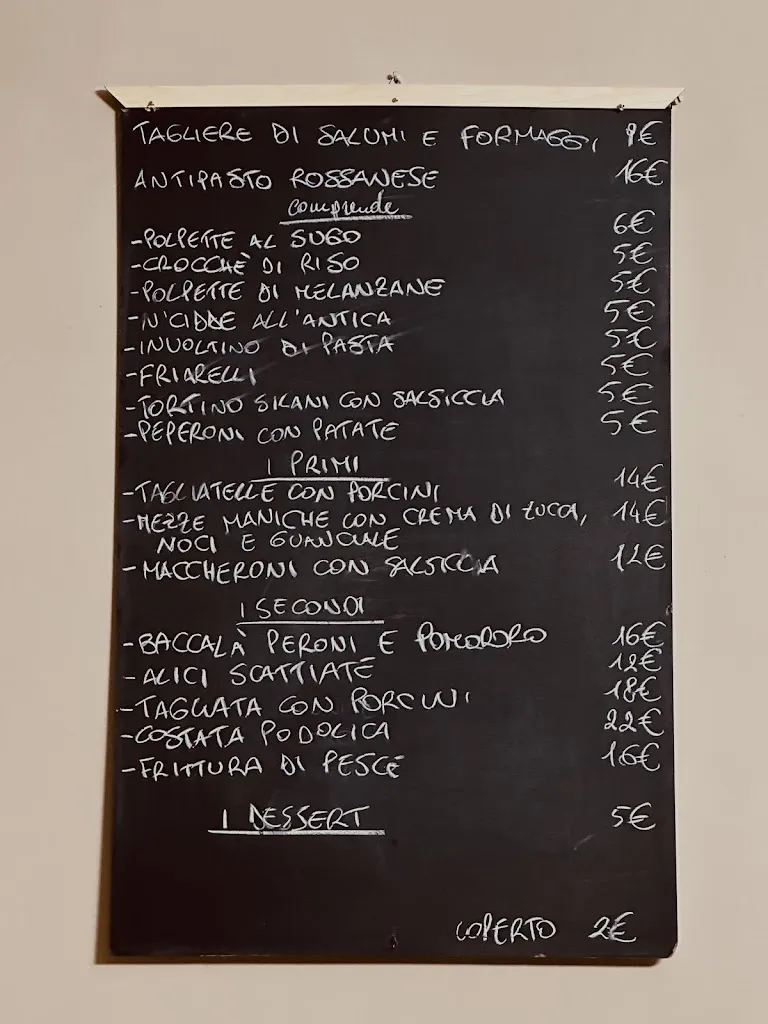 TAGLIERE DI SALUMI E FORMAGGI 9€
ANTIPASTO ROSSANESE 16€
comprende
-POLPETTE AL SUGO 6€
-CROCCHÈ DI RISO 5€
-POLPETTE DI MELANZANE 5€
-N'CIDDE ALL'ANTICA 5€
-INVOLTINO DI PASTA 5€
-FRIARELLI 5€
-TORTINO SILANI CON SALSICCIA 5€
-PEPERONI CON PATATE 5€
I PRIMI
-TAGLIATELLE CON PORCINI 14€
-MEZZE MANICHE CON CREMA DI ZUCCA, 14€
NOCI E GUANCIALE
-MACCHERONI CON SALSICCIA 12€
I SECONDI
-BACCALÀ PERONI E POMODORO 16€
-ALICI SCATTIATE 12€
-TAGLIATA CON PORCINI 18€
-COSTATA PODOLICA 22€
-FRITTURA DI PESCE 16€
I DESSERT 5€
COPERTO 2€